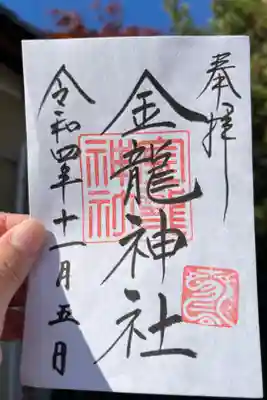 奉拝
金龍神社
令和四年十一月五日